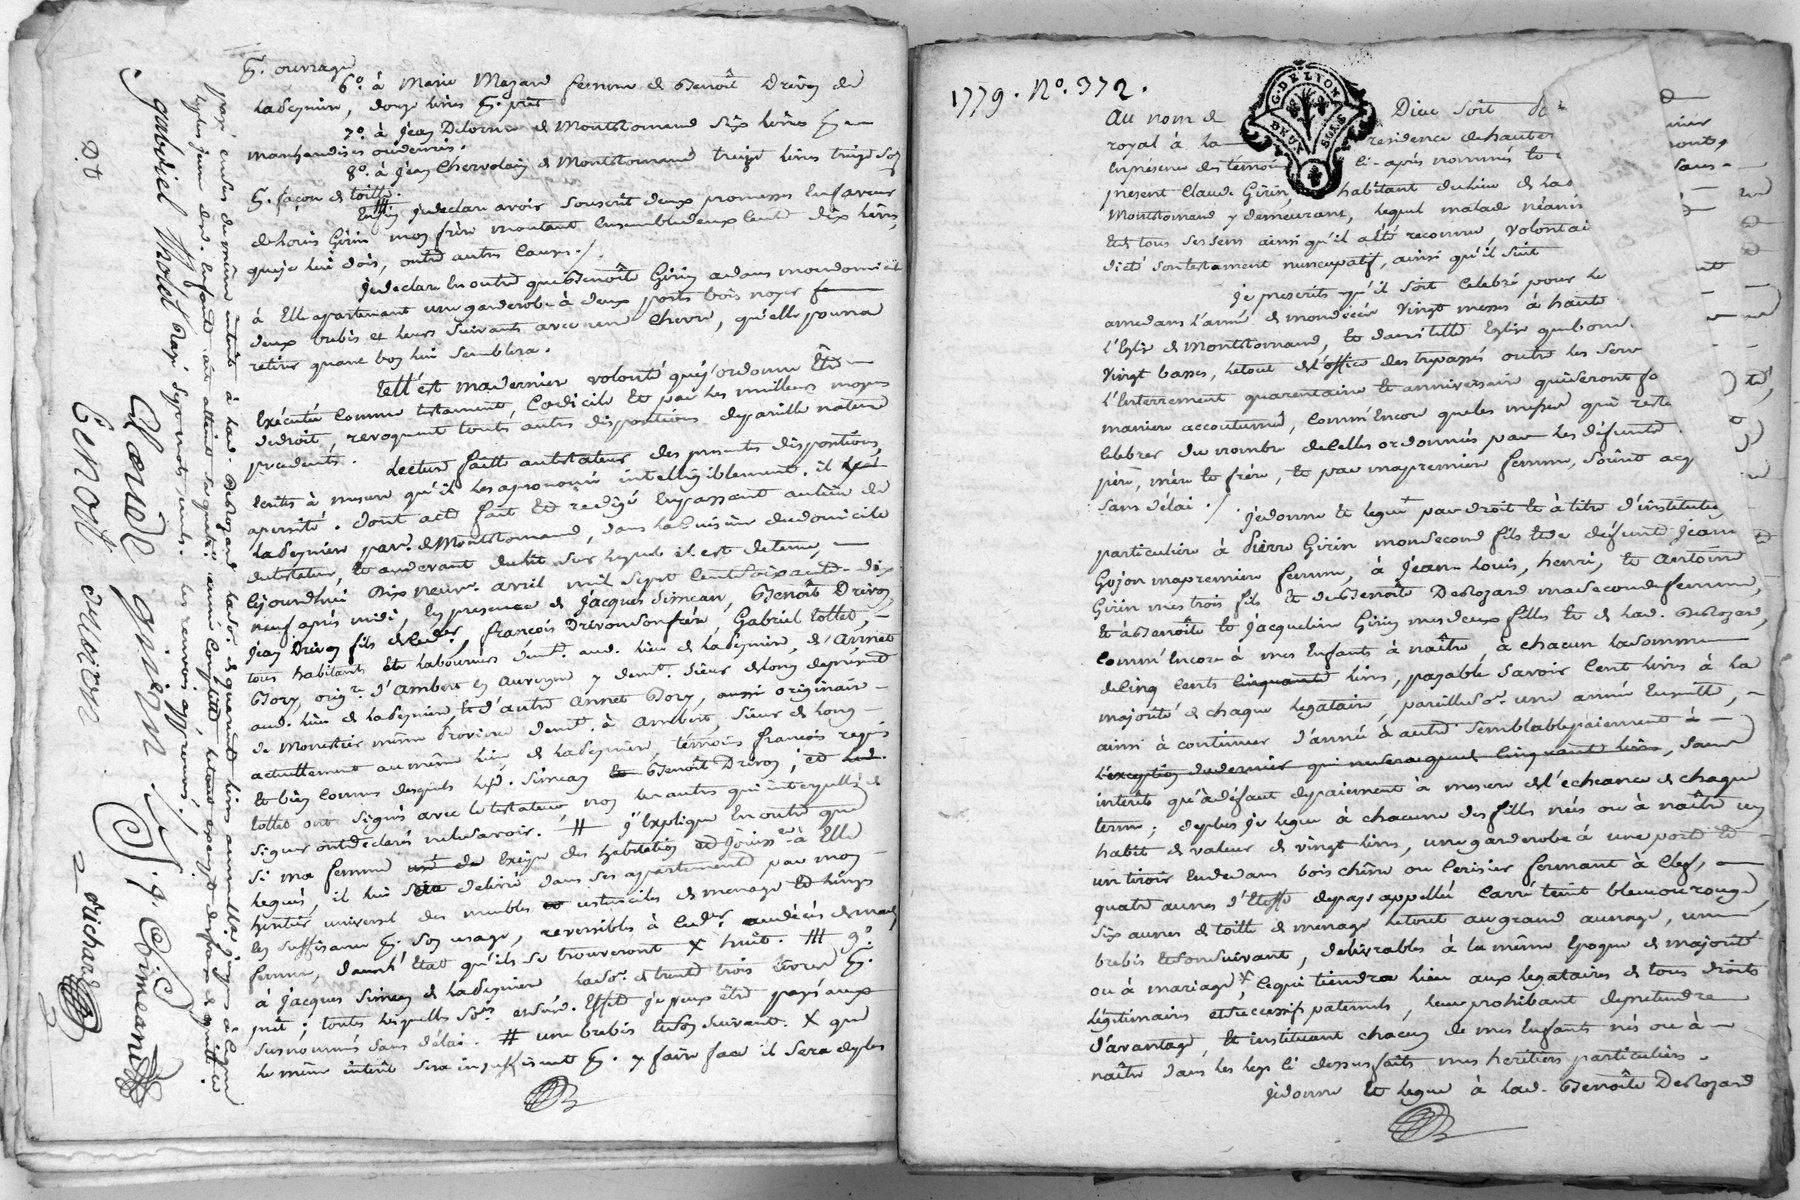 pr. ouvrage
6°. à Marie Mazard femme de Benoît Drevon de
laBeyniere, douze livres pr. prêt
7°. à Jean Delorme de Montromand six livres pr.
marchandises ou denrées.
8°. à Jean Chervolain de Montromand treize livres treize sols
pr. façon de toille.
Enfin je declare avoir souscrit deux promesses en faveur
de Louis Girin mon frère montant ensemble deux cents dix livres,
que je lui dois, outre autres causes./.
Je declare en outre que Benoîte Girin a dans mon domicile
à Elle apartenant une garderobe à deux portes bois noyer
deux brebis et leurs suivants avec une chevre, qu'elle pourra
retirer quant bon lui semblera.
Telle est ma dernier volonté que j'ordonne Etre
Exécutée comme testament, Codicile Et par les meilleurs moyens
de droit, revoquant touts autres dispositions de pareille nature
precedents.
Lecture faitte au testateur des presentes dispositions,
ecrites à mesure qu'il les a prononcé intelligiblement. il y a
a persisté. dont acte fait Et redigé En passant au lieu de
laBeyniere parr. de Montromand, dans la Cuisine du domicile
du testateur, Et au devant du lit sur lequel il est detenu,
cejourdhui Dix neuf avril mil sept Cent soixante-dix
neuf après midi, En presence de Jacques Simean, Benoît Drevon,
Jean Drevon fils de, françois Drevon son frère, Gabriel tollet,
tous habitants Et laboureurs demt. aud. lieu de laBeyniere, & Annet
Bory, orige. d'Ambert En Auvergne y demt. sieur de long de present
aud. lieu de laBeyniere Et d'autre Annet Bory, aussi originaire
de Monestier même Province demt. à Ambert, sieur de long
actuellement au même lieu de laBeyniere, témoins français regis
Et bien connus desquels led. Simean Et Benoît Drevon, Et led.
tollet ont signés avec le testateur, non les autres qui interpellés de
signer ont declarés ne le savoir. # j'Explique En outre que
si ma femme exige des habitation et jouisse. à Elle
legués, il lui sera delivré dans ses appartements par mon
heritier universel des meubles ustencils de menage Et linges
en suffisance pr. son usage, reversibles à lui au décès de ma
femme, dans l'Etat qu'ils se trouveront X huit. ## 9°.
à Jacques Simean de laBeyniere la so. de trente trois livres pr.
prêt; toutes lesquelles sos. en sud. Effet je veux être payé aux
susnommés sans délai. # une brebis et son suivant. X que
le même interêt sera insuffisant pr. y faire face il sera de plus
payé en sus de même interêt à lad. Delozard la so. de quarante livres annuelles jusques à ce que
le plus jeune des. Enfants ait atteint sa quatre. année complette, le tout exempt de frais de quittance.
Rayé sept mots nuls. les renvois approuvés./.
gabriel Tholet
D.t
Claude girinn
Benoit drivon
J. Simean
Richard
1779. No. 372.
G. DE LYON
DEUX SOLS
Au nom de Dieu soit
royal à la residence de hauter
En presence des temoins ci-après nommés
present Claude Girin, habitant du lieu de laB
Montromand y demeurant, lequel malade néanm
Et de tous ses sens ainsi qu'il a été reconnu, volontai
dicté son testament nuncupatif, ainsi qu'il suit
je prescrits qu'il soit Celebré pour le
ame dans l'année de mon décès Vingt messes à haute
l'Eglise de Montromand, Et dans telle Eglise que bon
Vingt basses, le tout de l'office des trepassés outre les serv
l'Enterrement quarentaine Et anniversaire qui seront fa
maniere accoutumée, comm' Encore que les messes qui reste
celebrer du nombre de Celles ordonnées par les défunts
père, mère Et frère, Et par ma premiere femme, soient acq
sans délai./.
je donne Et legue par droit Et à titre d'institution
particuliere à Pierre Girin mon second fils Et de défunte Jeanne
Gojon ma premiere femme, à Jean-Louis, henri, Et Antoine
Girin mes trois fils Et de Benoîte Delozard ma seconde femme,
Et à Benoîte Et Jacqueline Girin mes deux filles Et de lad. Delozard,
Comm' Encore à mes Enfants à naître, à chacun la somme
de Cinq Cents cinquante livres, payable savoir Cent livres à la
majorité de chaque legataire, pareille so. une année Ensuitte,
ainsi à continuer d'année à autre semblable paiement à
l'exception du dernier qui ne sera que de cinquante livres, sans
interêts qu'à défaut de paiement à mesure de l'echeance de chaque
terme; de plus je legue à chacune des filles nées ou à naître un
habit de valeur de vingt livres, une garderobe à une porte Et
un tiroir En dedans bois chêne ou Cerisier fermant à Clef,
quatre aunes d'Etoffe de pays appellée Carré teint bleu ou rouge,
six aunes de toille de menage le tout au grand aunage, une
brebis Et son suivant, delivrables à la même Epoque de majorité
ou à mariage, X ce qui tiendra lieu aux legataires de tous droits
légitimaires et successifs paternels, leur prohibant de pretendre
d'avantage, Et instituant chacun de mes Enfants nés ou à
naître dans les legs Ci dessus faits mes heritiers particuliers.
je donne Et legue à lad. Benoîte Delozard